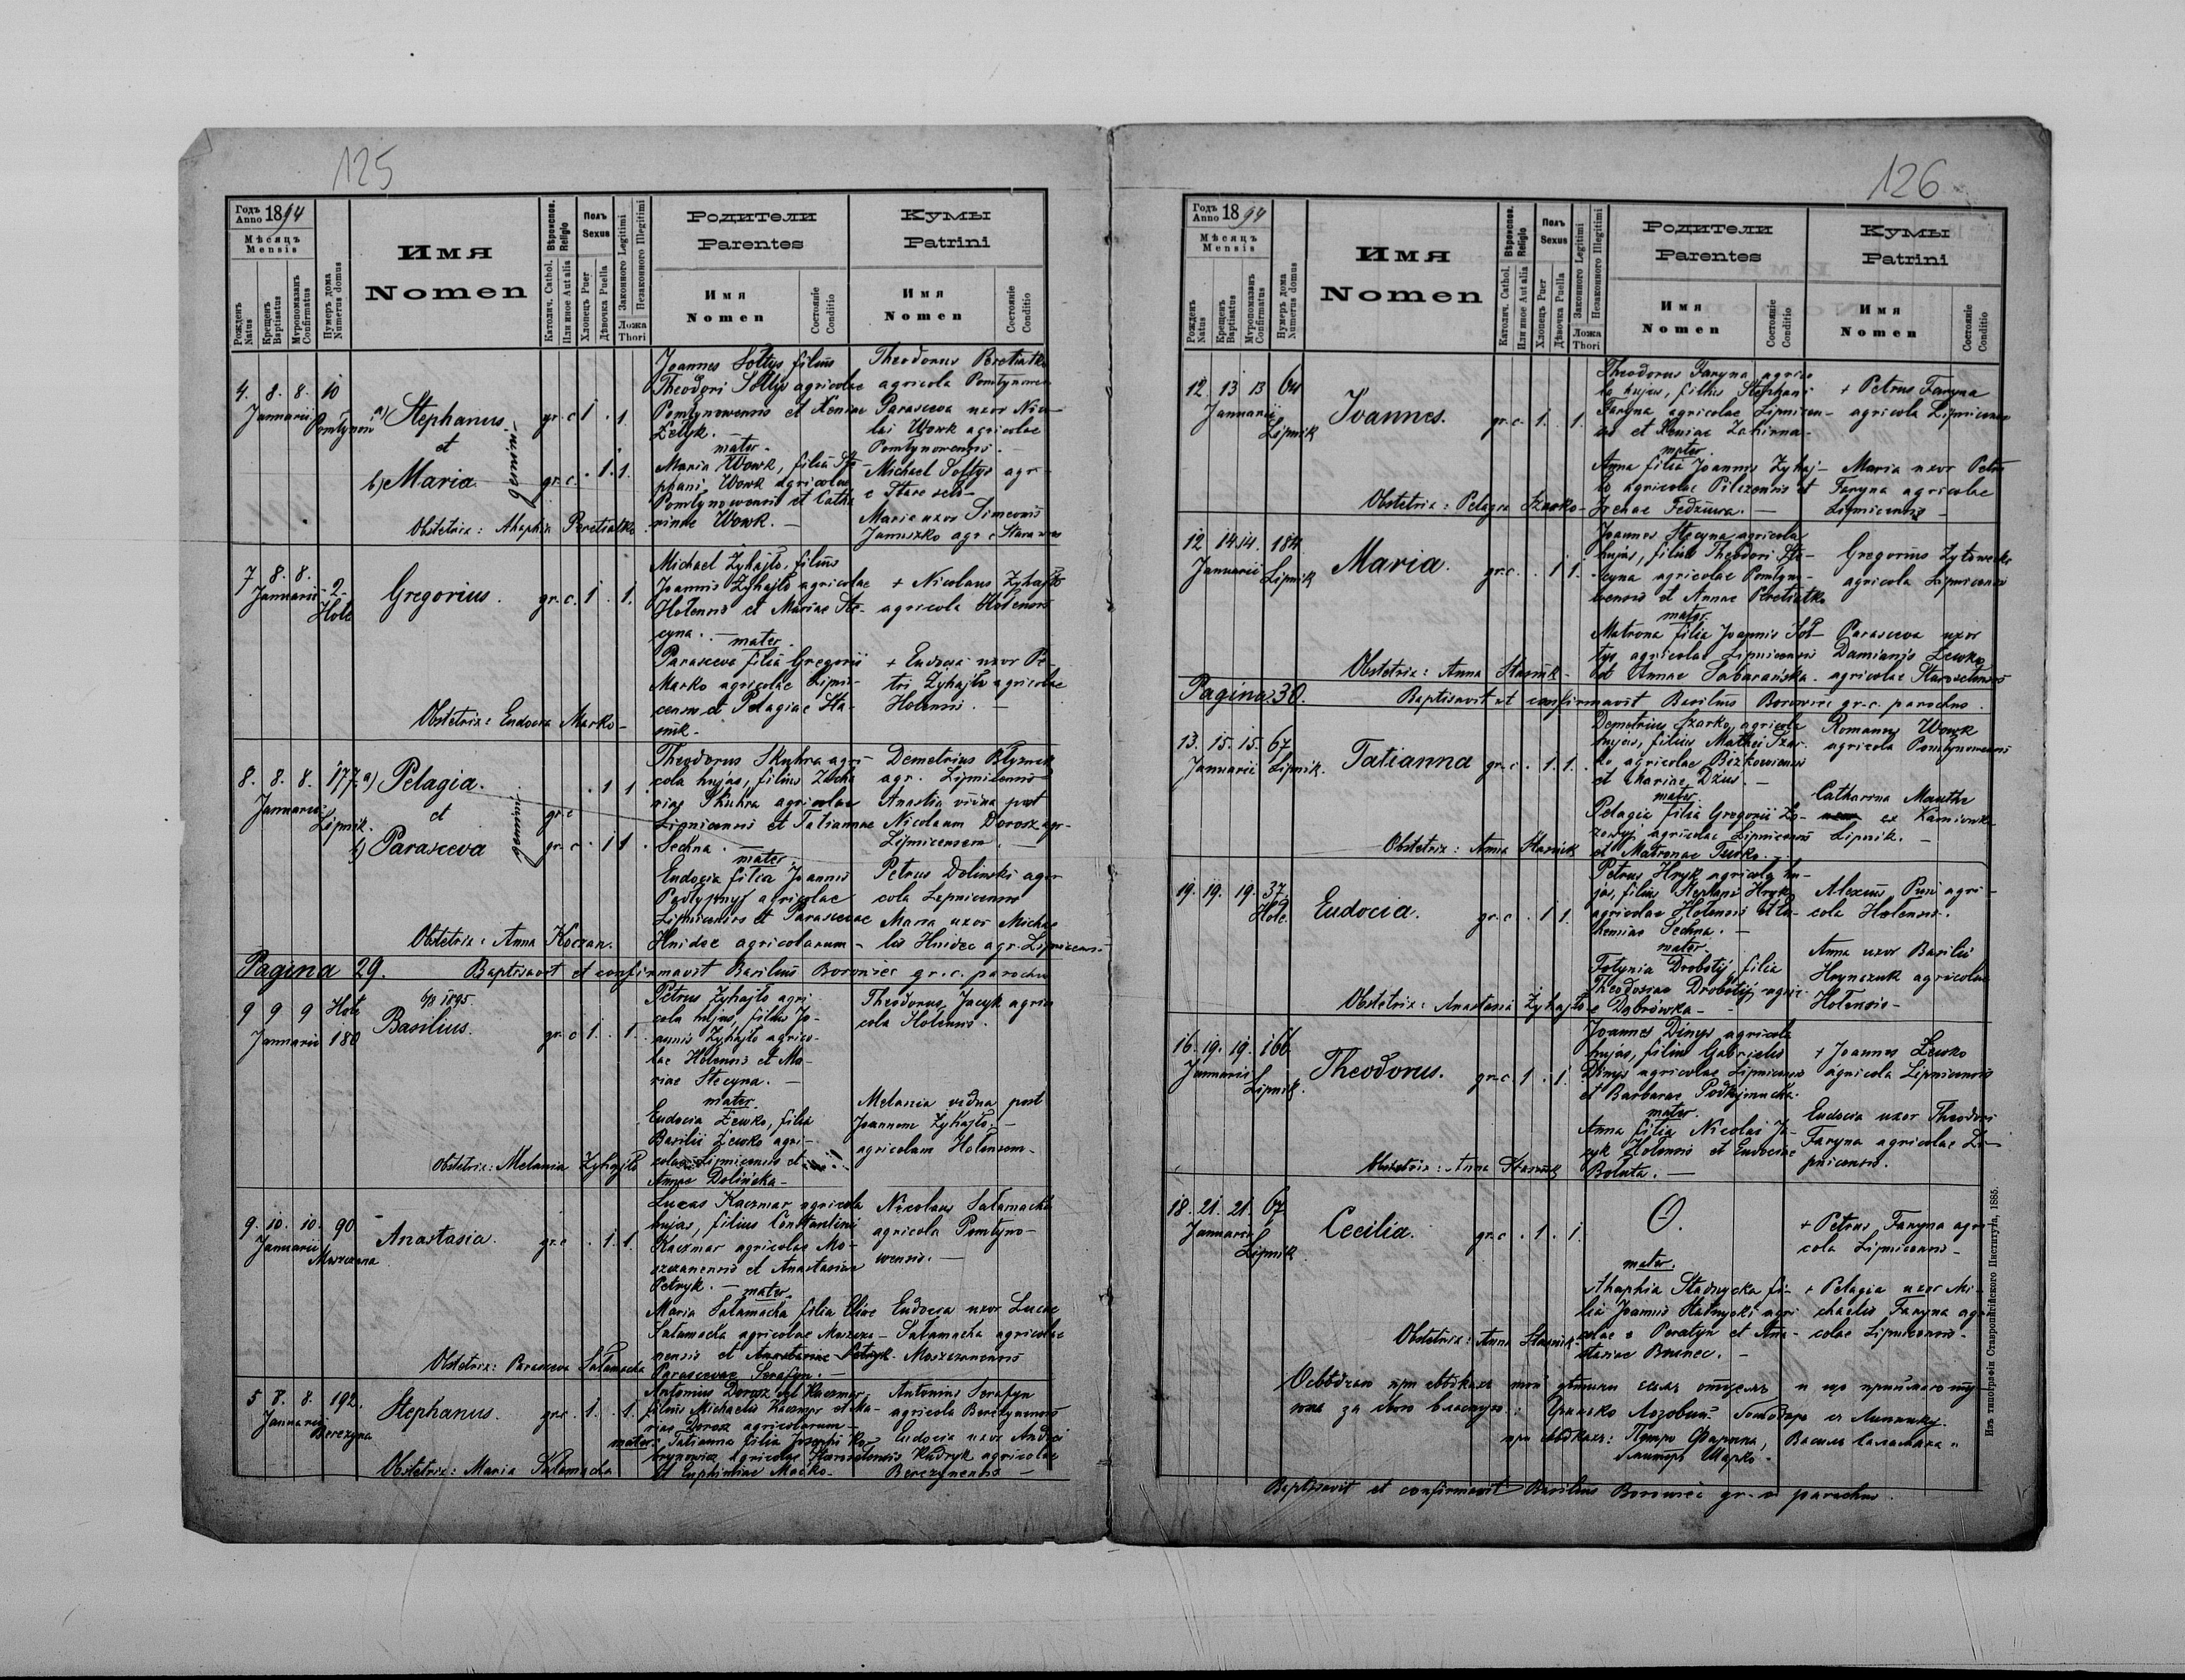 125
Годъ Anno 1894
Мѣсяцъ Mensis
Рожденъ Natus
Крещенъ Baptisatus
Мѵропомазанъ Confirmatus
Нумеръ дома Numerus domus
Имя
Nomen
Вѣроиспов. Religio
Католич. Cathol.
Или иное Aut alia
Полъ Sexus
Хлопецъ Puer
Дѣвочка Puella
Законного Legitimi
Незаконного Illegitimi
Ложа Thori
Родители
Parentes
Имя
Nomen
Состояніе Conditio
Кумы
Patrini
Имя
Nomen
Состояніе Conditio
4. 8. 8. 10
Januarii
a) Stephanus gr. c 1 . 1.
et
b) Maria gr. c. . 1. 1.
gemini
Joannes Sołtys filius
Theodori Sołtys agricolae
Pomłynowensis et Xeniae
mater.
Maria Wowk, filia Ste-
phani Wowk agricolae
Pomłynowensis et Catha
rinae Wowk. —
Theodorus Peretiatko
agricola
Parasceva uxor Nico-
lai Wowk agricolae
Pomłynowensis.
Michael Sołtys agr-
Maria uxor Simeonis
Januszko agr.
Obstetrix: Ahaphia Peretiatko
7 8. 8. 2.
Januarii
Hole
Gregorius. gr. c. 1 . 1.
Michael Zyhajło. filius
Joannis Zyhajło agricolae
Holensis et Mariae Ste-
cyna. — mater.
Parasceva filia Gregorii
Marko agricolae Lipni-
censis et Pelagiae Sta-
+ Nicolaus Zyhajło
agricola Holensis
+ Eudocia uxor Pe-
tri Zyhajło agricolae
Holensis. —
Obstetrix: Eudocia Marko-
8. 8. 8. 177.
Januarii
Lipnik.
a) Pelagia. . 1 1.
et gr. c
b) Parasceva gr. c . 1 1.
gemini
Theodorus Skuhra agri-
cola hujas, filius Zacha
riae Skuhra agricolae
Lipnicensis et Tatiannae
Sechna. — mater.
Eudocia filia Joannis
agricolae
Lipnicensis et Parascevae
Hnidec agricolarum —
Demetrius
agr. Lipnicensis
vidua post
Nicolaum Dorosz agr-
Lipnicensem. —
Petrus Dolinski agri-
cola Lipnicensis
Maria uxor Michae
lis Hnidec agr. Lipnicensis
Obstetrix: Anna Koczan.
Pagina 29. Baptisavit et confirmavit Basilius Borowiec gr. c. parochus
9 9 9 Hole
Januarii 180
1895
Basilius. gr. c 1. . 1.
Petrus Zyhajło agri-
cola hujas, filius Jo-
annis Zyhajło agrico-
lae Holensis et Ma-
riae Stecyna. —
mater.
Eudocia Lewko, filia
Basilii Lewko agri-
colae Lipnicensis et
Annae Dolińska-
Theodorus Jacyk agri
cola Holensis.
Melania vidua post
Joannem Zyhajło. —
agricolam Holensem-
Obstetrix: Melania Zyhajło
9. 10. 10. 90
Januarii
Moszczana
Anastasia. gr. c . 1. 1.
Lucas Kaczmar agricola
hujas, filius Constantini
Kaczmar agricolae Mo-
szczanensis et Anastasiae
Petryk. — mater.
Maria Sałamacha filia Eliae
Sałamacha agricolae Moszcza-
nensis et Anastasiae Petryk.
Parascevae Serafyn. —
Nicolaus Sałamacha
agricola Pomłyno-
wensis. —
Eudocia uxor Lucae
Sałamacha agricolae
Moszczanensis
Obstetrix: Parasceva Sałamacha
5 8. 8. 192.
Januarii
Berezyna
Stephanus. gr. c. 1. . 1.
Antonius Dorosz vel Kaczmar,
filius Michaelis Kaczmar et Ma-
riae Dorosz agricolarum —
mater. Tatianna filia Josephi
agricolae
et Euphimiae Macko-
Antonius Serafyn
agricola Berezynensis
Eudocia uxor Andrei
Kudryk agricolae
Berezynensis —
Obstetrix: Maria Sałamacha
126
Годъ Anno 1894
Мѣсяцъ Mensis
Рожденъ Natus
Крещенъ Baptisatus
Мѵропомазанъ Confirmatus
Нумеръ дома Numerus domus
Имя
Nomen
Вѣроиспов. Religio
Католич. Cathol.
Или иное Aut alia
Полъ Sexus
Хлопецъ Puer
Дѣвочка Puella
Законного Legitimi
Незаконного Illegitimi
Ложа Thori
Родители
Parentes
Имя
Nomen
Состояніе Conditio
Кумы
Patrini
Имя
Nomen
Состояніе Conditio
12. 13 13 64
Januarii
Lipnik
Ioannes. gr. c. 1. . 1.
Theodorus Faryna agrico
la hujas, filius Stephani
Faryna agricolae Lipnicen-
sis et Xeniae
mater.
Anna filia Joannis Zyhaj-
ło agricolae Pilczensis et
Irenae Fedziura. —
+ Petrus Faryna
agricola Lipnicensis
Maria uxor Petri
Faryna agricolae
Lipnicensis —
Obstetrix: Pelagia Szarko-
12 14. 14. 184
Januarii
Lipnik
Maria. gr. c. . 1 1.
Joannes Stecyna agricola
hujas, filius Theodori Ste-
cyna agricolae Pomłyno-
wensis et Annae Peretiatko
mater.
Matrona filia Joannis Soł-
tys agricolae Lipnicensis
et Annae Sabarańska.
Gregorius
agricola Lipnicensis
Parasceva uxor
Damianis Lewko
agricolae Staroselensis
Obstetrix: Anna Stasiuk-
Pagina 30. Baptisavit et confirmavit Basilius Borowiec gr. c. parochus.
13. 15. 15. 67
Januarii Lipnik.
Tatianna gr. c . 1. 1.
Demetrius Szarko agricola
hujas, filius Mathei Szar-
ko agricolae
et Mariae Dzius. —
mater.
Pelagia filia Gregorii Lo-
zowyj agricolae Lipnicensis
et Matronae
Romanus Wowk
agricola Pomłynowensis
Catharina
ex
Lipnik. —
Obstetrix: Anna Stasiuk
19. 19. 19. 37.
Hole.
Eudocia. gr. c . 1 1.
Petrus Hryk agricola hu-
jas, filius Stephani Hryk
agricolae Holensis et Eu-
hemiae Sechna. —
mater.
Fotynia Drobotij, filia
Theodosiae Drobotij agric.
e Dąbrówka —
Alexius agri-
cola Holensis.
Anna uxor Basilii
Hrynczuk agricolae
Holensis-
Obstetrix: Anastasia Zyhajło
16. 19. 19. 166
Januarii
Lipnik.
Theodorus. gr. c 1 . 1.
Joannes Dinys agricola
hujas, filius Gabrielis
Dinys agricolae Lipnicensis
et Barbarae
mater.
Anna filia Nicolai Ja-
cyk Holensis et Eudociae
Boluta. —
+ Joannes Lewko
agricola Lipnicensis
Eudocia uxor Theodori
Faryna agricolae Li-
pnicensis.
Obstetrix: Anna Stasiuk
18. 21. 21. 67
Januarii
Lipnik
Cecilia. gr. c . 1. 1.
O.
mater.
Ahaphia Stadnycka fi-
lia Joannis Stadnycki agri
colae e Peratyn et Ana-
stasiae
+ Petrus Faryna agri
cola Lipnicensis-
+ Pelagia uxor Mi-
chaelis Faryna agri-
colae Lipnicensis-
Obstetrix: Anna Stasiuk-
при свѣдкахъ той
за свою
Гринько Лозовий
при свѣдкахъ: Петро Фарина, Василь Саламаха
Шарко.
Baptisavit et confirmavit Basilius Borowiec gr. c. parochus.
Изъ типографіи Ставропигійского Института, 1885.